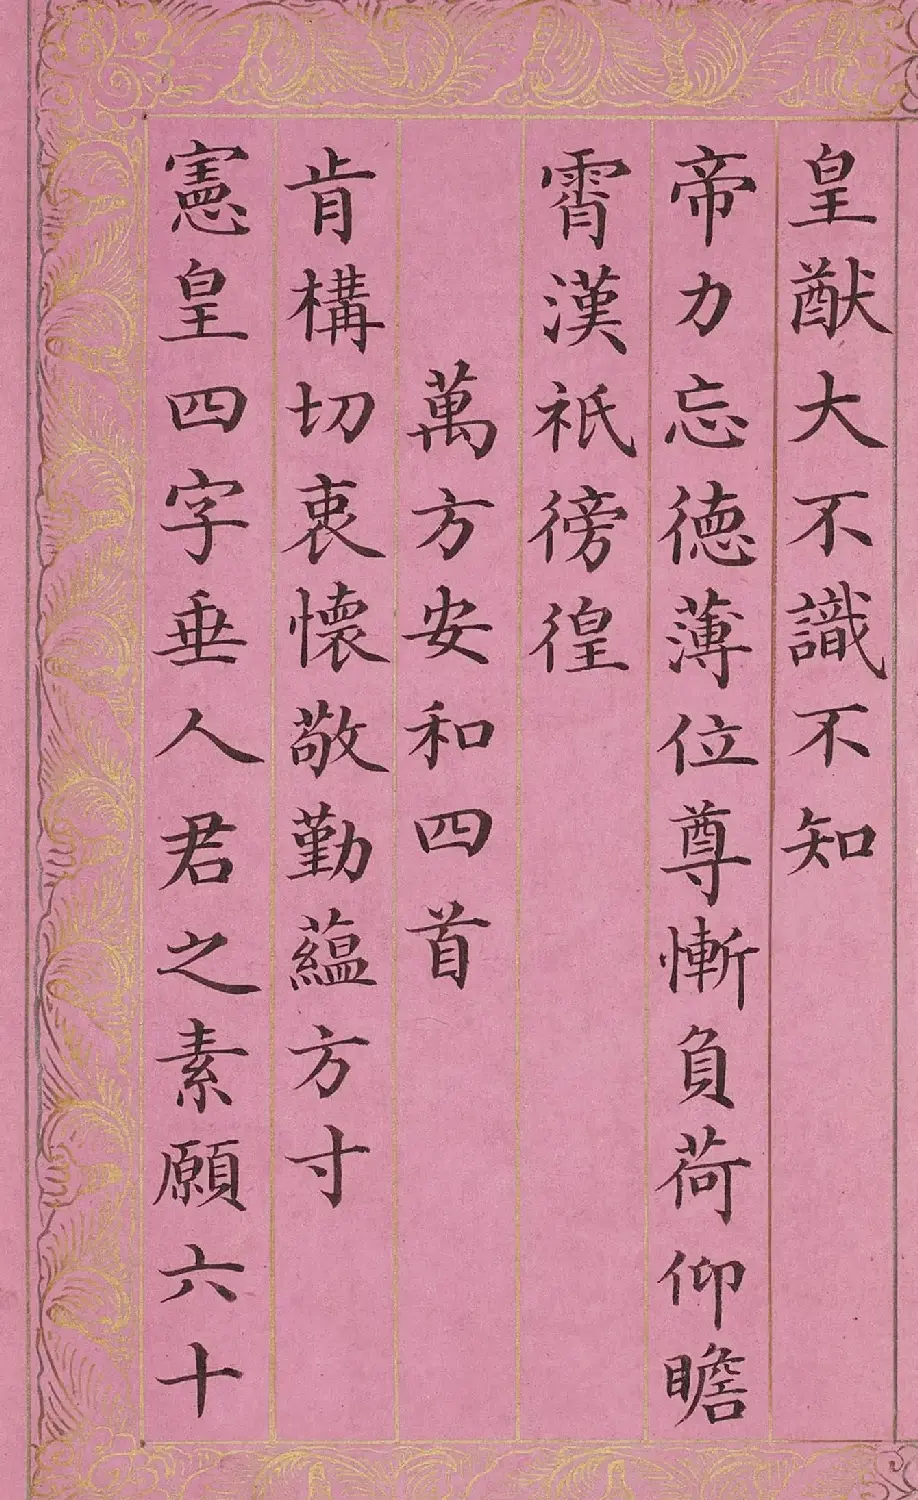 皇猷大不識不知
帝力忘德薄位尊慚負荷仰瞻
霄漢祇徬徨
萬方安和四首
肯構切衷懷敬勤蘊方寸
憲皇四字垂人君之素願六十